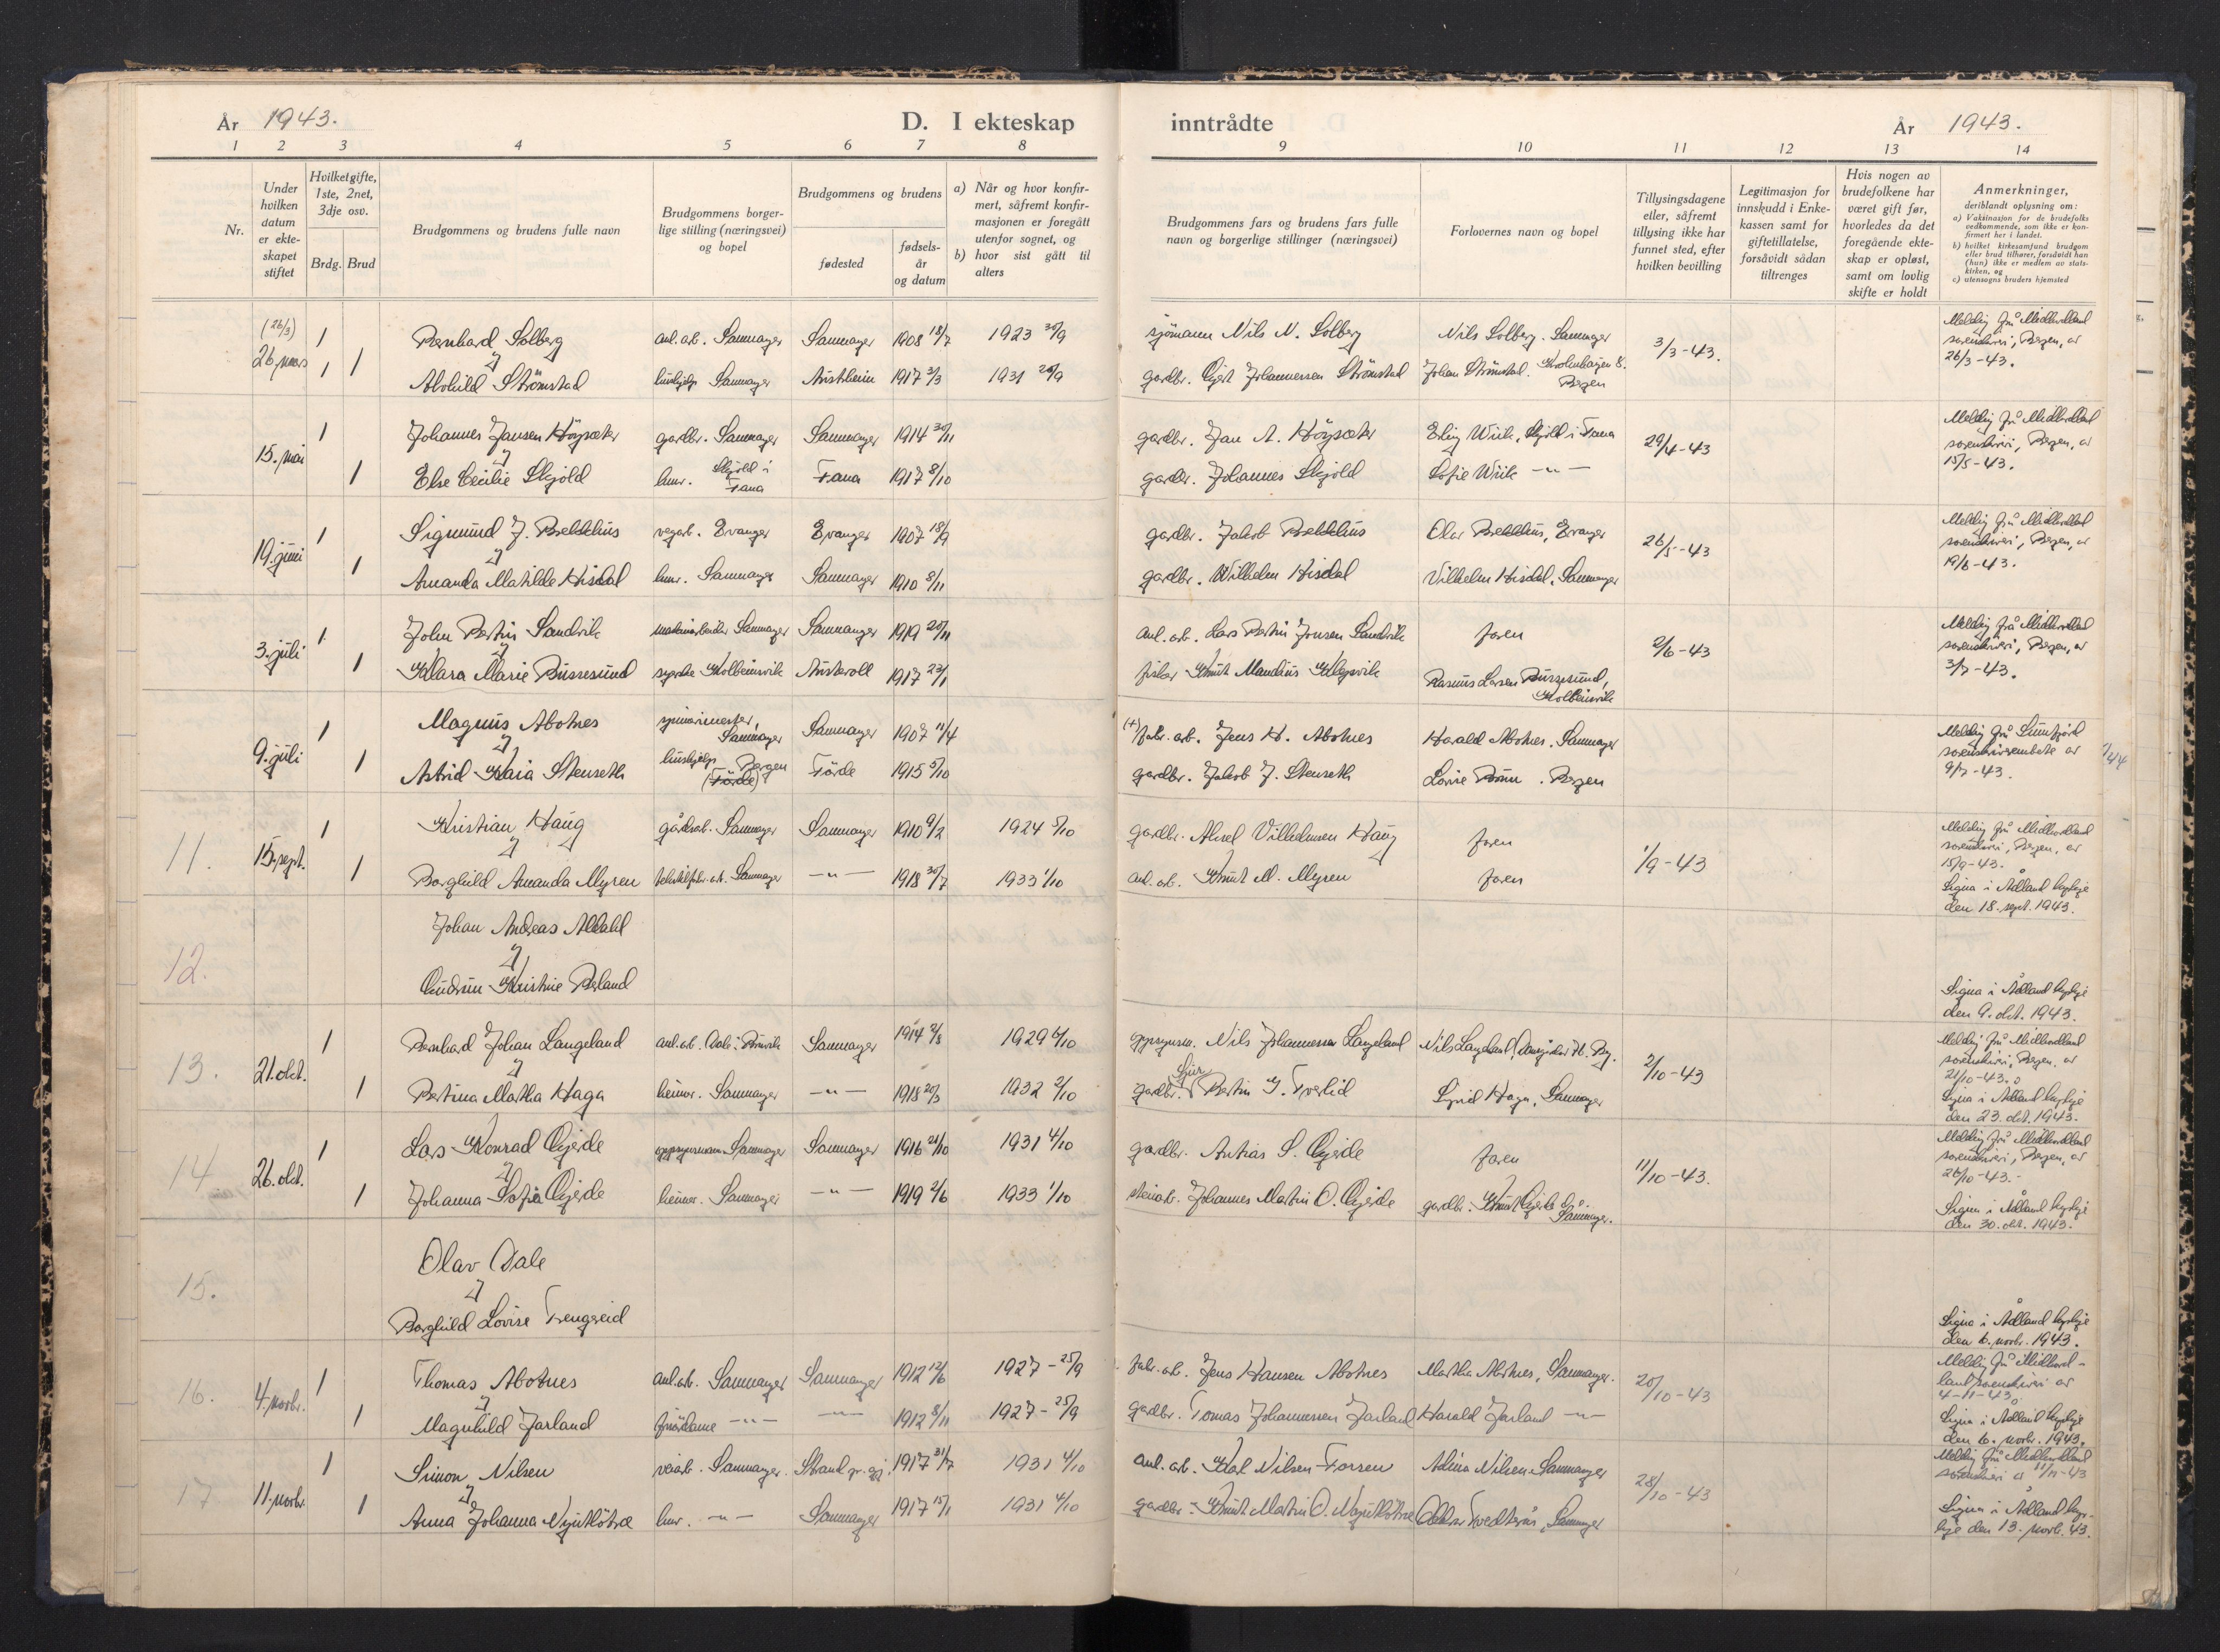 År 1943.
D. I ekteskap
inntrådte
År 1943.
1 2 3 4 5 6 7 8 9 10 11 12 13 14
Nr.
Under
hvilken
datum
er ekte-
skapet
stiftet
Hvilket gifte,
1ste, 2net,
3dje osv.
Brdg. Brud
Brudgommens og brudens fulle navn
Brudgommens borger-
lige stilling (næringsvei)
og bopel
Brudgommens og brudens
fødested
fødsels-
år
og datum
a) Når og hvor konfir-
mert, såfremt konfir-
masjonen er foregått
utenfor sognet, og
b) hvor sist gått til
alters
Brudgommens fars og brudens fars fulle
navn og borgerlige stillinger (næringsvei)
Forlovernes navn og bopel
Tillysingsdagene
eller, såfremt
tillysing ikke har
funnet sted, efter
hvilken bevilling
Legitimasjon for
innskudd i Enke-
kassen samt for
giftetillatelse,
forsåvidt sådan
tiltrenges
Hvis nogen av
brudefolkene har
været gift før,
hvorledes da det
foregående ekte-
skap er opløst,
samt om lovlig
skifte er holdt
Anmerkninger,
deriblandt oplysning om:
a) Vaksinasjon for de brudefolks
vedkommende, som ikke er kon-
firmert her i landet.
b) hvilket kirkesamfund brudgom
eller brud tilhører, forsåvidt han
(hun) ikke er medlem av stats-
kirken, og
c) utensogns bruders hjemsted
(26/3)
26. mars 1 Bernhard Solberg anl.arb. Samnanger Samnanger 1908 18/7 1923 30/9 sjømann Nils N. Solberg Nils Solberg. Samnanger 3/3-43.
1 1 Strömstad Samnanger Austrheim 1917 3/3 1931 gardbr. Johannessen Strömstad Johan Strömstad.
Bergen
Melding frå Midhordland
sorenskriveri, Bergen, av
26/3-43.
15. mai 1 Johannes Jansen Höysæter gardbr. Samnanger Samnanger 1914 30/11 gardbr. Jan A. Höysæter Erling Wiik, Skjold i Fana 29/4-43
1 Else Cecilie Skjold Skjold i Fana Fana 1917 8/10 gardbr. Johannes Skjold Sofie Wiik -"-
Melding frå Midhordland
sorenskriveri, Bergen, av
15/5-43.
19. juni 1 Sigmund J. vegarb. Evanger Evanger 1907 18/9 gardbr. Jakob Olav Evanger 26/5-43
1 Amanda Matilde Hisdal Samnanger Samnanger 1910 8/11 gardbr. Wilhelm Hisdal Vilhelm Hisdal, Samnanger
Melding frå Midhordland
sorenskriveri, Bergen, av
19/6-43.
3. juli 1 John Bertin Sandvik Samnanger Samnanger 1919 20/11 anl. arb. Lars Bertin Jonsen Sandvik faren 2/6-43
1 Klara Marie Bussesund Kolbeinsvik Austevoll 1917 23/1 fiskar Knut Mandius Klepsvik Rasmus Larsen Bussesund,
Kolbeinsvik
Melding frå Midhordland
sorenskriveri, Bergen, av
3/7-43.
9. juli 1 Magnus Abotnes spinnemester, Samnanger Samnanger 1907 11/4 (+) fabr. arb. Jens H. Abotnes Harald Abotnes. Samnanger
1 Astrid Kaia Stenseth hushjelp Bergen (Förde) Förde 1915 5/10 gardbr. Jakob J. Stenseth Lovise Bergen
Melding frå Sunnfjord
sorenskrivarembete av
9/7-43.
11. 15. sept. 1 Kristian Haug gårdsarb. Samnanger Samnanger 1910 9/2 1924 5/10 gardbr. Aksel Vilhelmsen Haug faren 1/9-43
1 Borghild Amanda Myren Samnanger -"- 1918 30/7 1933 1/10 anl. arb. Knut M. Myren faren
Melding frå Midhordland
sorenskriveri, Bergen, av
15/9-43.
Signa i Ådland kyrkje
den 18. sept. 1943.
12. Johan Andreas
Gudrun Kristine
Signa i Ådland kyrkje
den 9. okt. 1943.
13. 21. okt. 1 Bernhard Johan Langeland anl.arb. Samnanger 1914 1929 6/10 Nils Johannessen Langeland Nils Langeland, 2/10-43
1 Bertina Martha Haga heimev. Samnanger -"- 1918 20/3 1932 2/10 gardbr. Sjur Bertin G. Tverlid Haga, Samnanger
Melding frå Midhordland
sorenskriveri, Bergen, av
21/10-43.
Signa i Ådland kyrkje
den 23. okt. 1943.
14 26. okt. 1 Lars Konrad Gjerde Samnanger Samnanger 1916 21/10 1931 4/10 gardbr. Antias S. Gjerde faren 11/10-43.
1 Johanna Sofia Gjerde heimev. Samnanger -"- 1919 2/6 1933 1/10 Johannes Martin O. Gjerde gardbr. Knut Gjerde
Samnanger.
Melding frå Midhordland
sorenskriveri, Bergen, av
26/10-43.-
Signa i Ådland kyrkje
den 30. okt. 1943.
15. Olav Dale
Borghild Lovise Tengereid
Signa i Ådland kyrkje
den 6. novbr. 1943.
16. 4. novbr. 1 Thomas Abotnes anl.arb. Samnanger Samnanger 1912 12/6 1927-25/9 fabr. arb. Jens Hansen Abotnes Martha Abotnes, Samnanger. 20/10-43
1 Magnhild Jarland -"- -"- 1912 8/11 1927-25/9 gardbr. Tomas Johannessen Jarland Harald Jarland -"-
Melding frå Midhord-
land sorenskriveri av
4-11-43.
Signa i Ådland kyrkje
den 6. novbr. 1943.
17 11. novbr. 1 Simon Nilsen veiarb. Samnanger. 1917 31/7 1931 4/10 anl. arb. Nilsen Forsen Nilsen Samnanger 28/10-43
1 Anna Johanna -"- Samnanger 1917 15/1 1931 4/10 gardbr. Knut Martin O. Samnanger
Melding frå Midhordland
sorenskriveri av 11/11-43
Signa i Ådland kyr-
kje den 13. novb. 43.